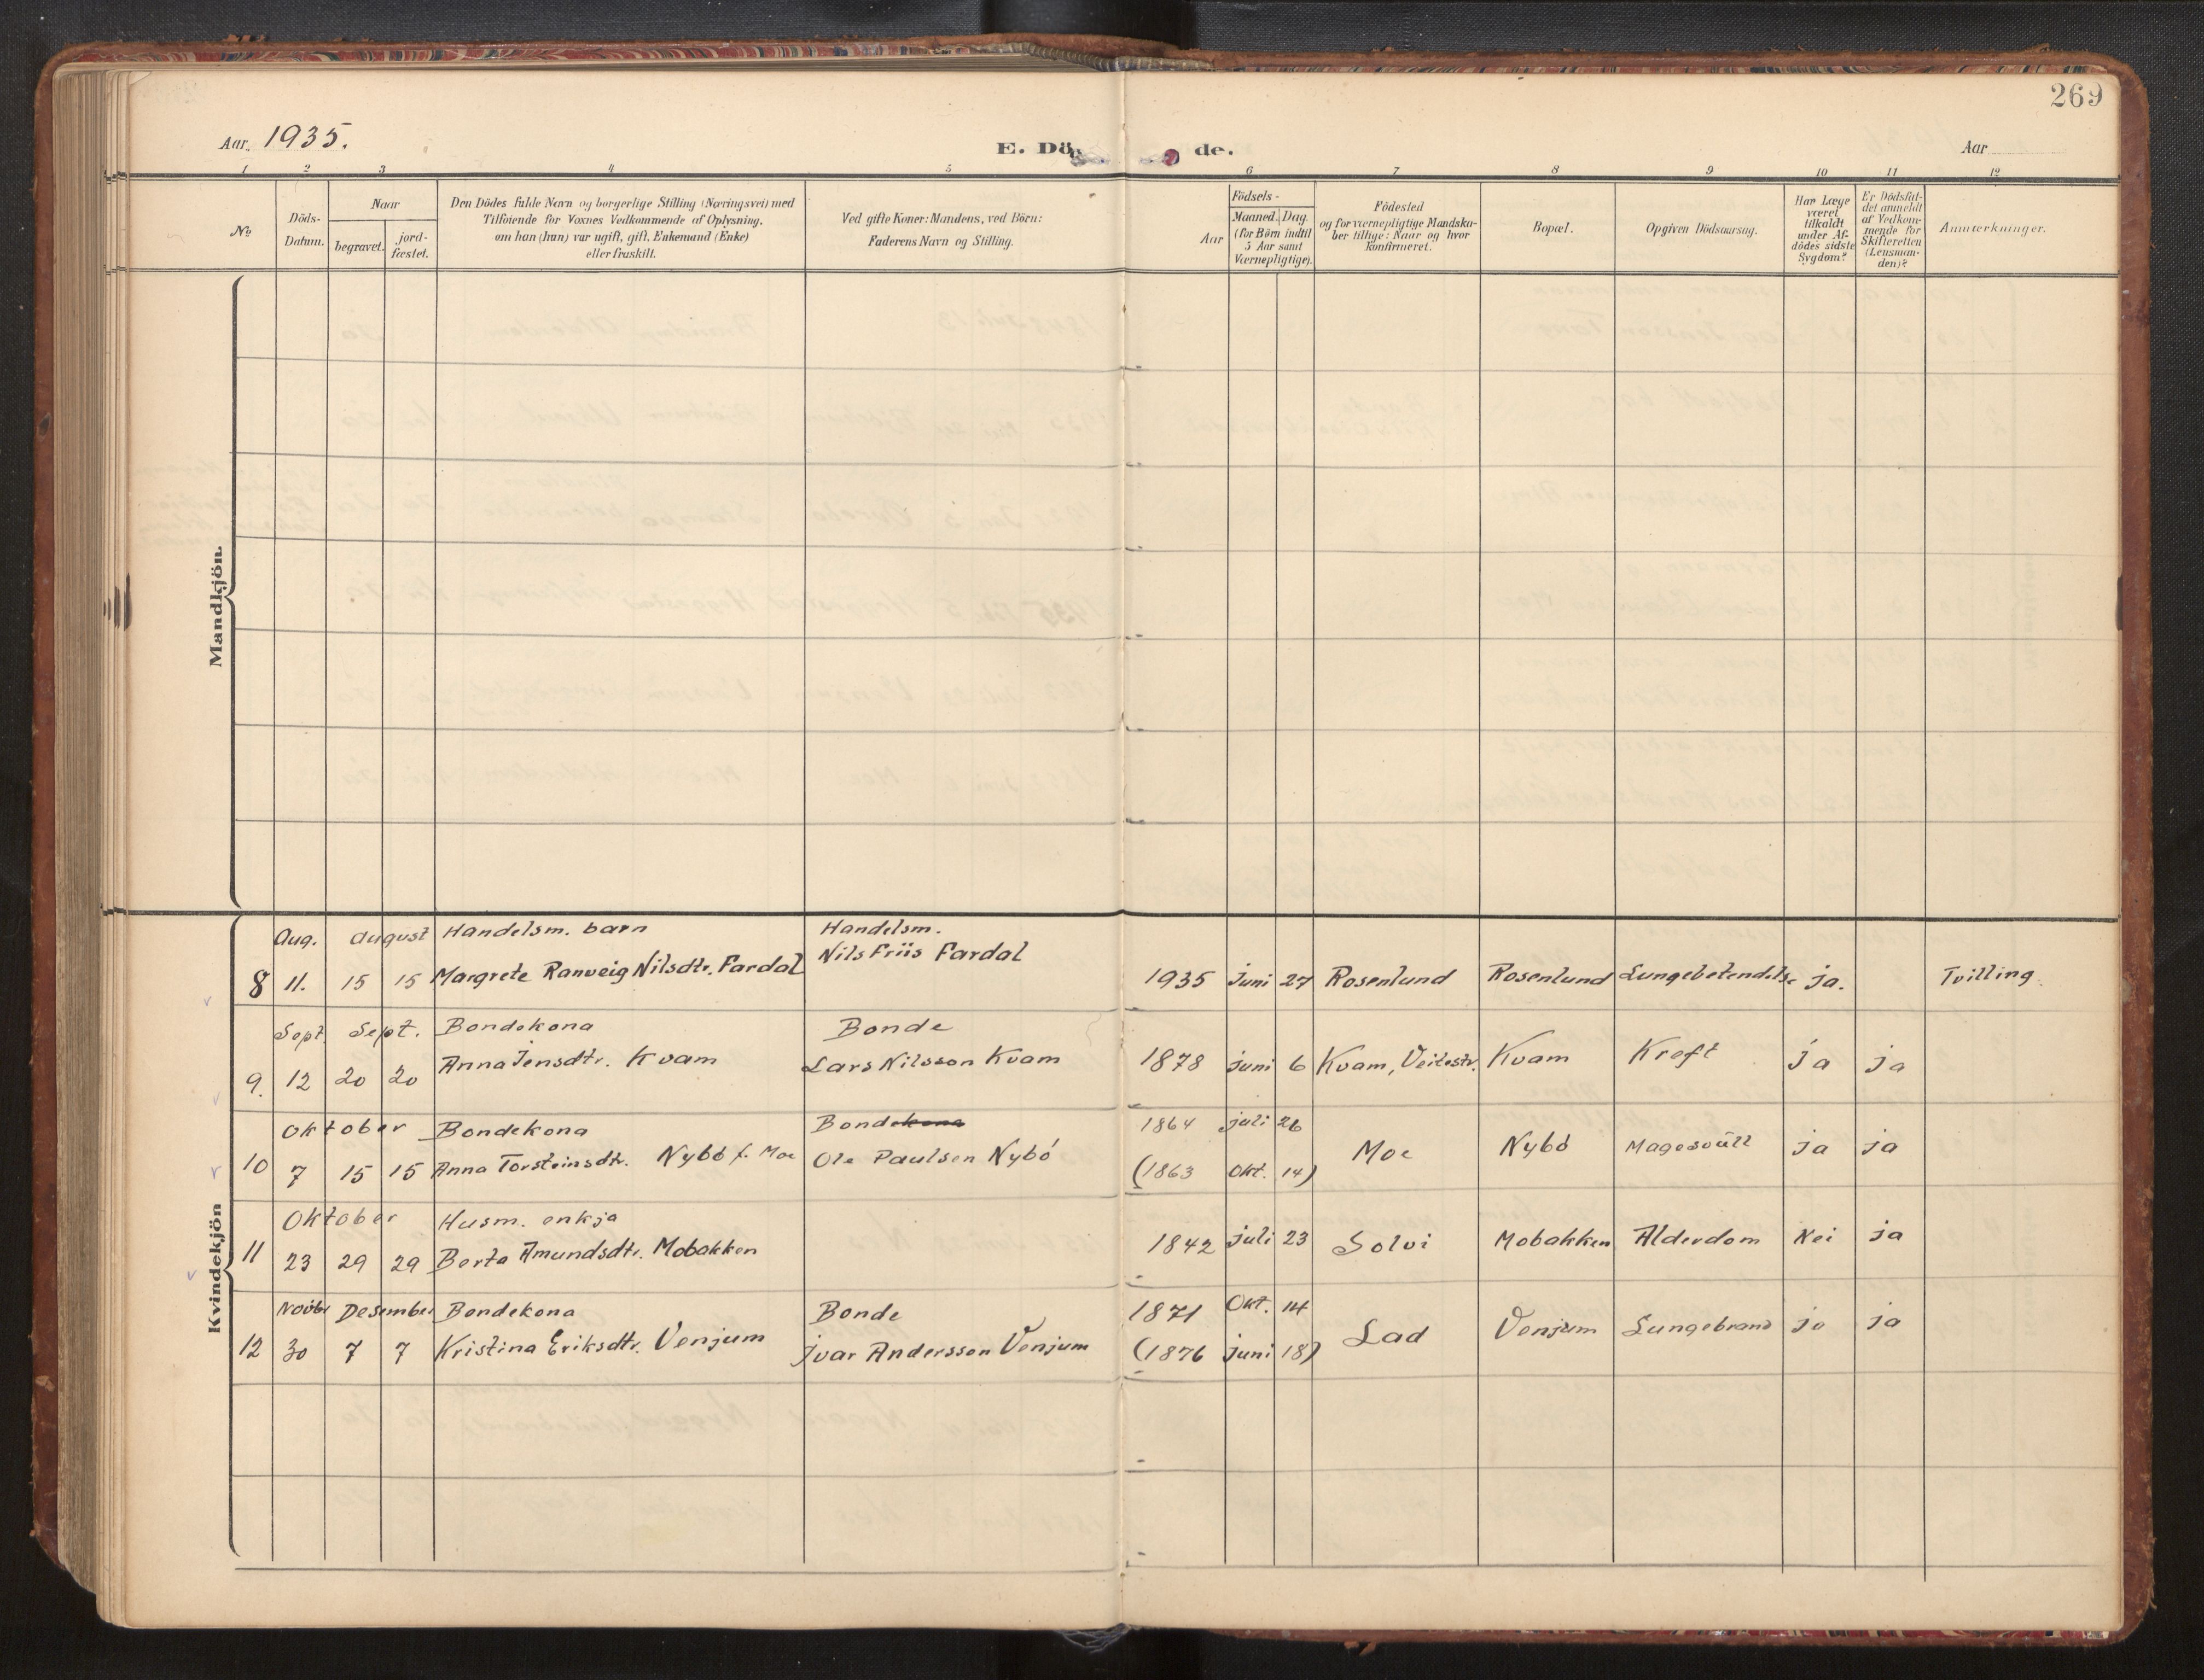 269
Aar. 1935.
E. Dö de.
Aar
1 2 3 4 5 6 7 8 9 10 11 12
No
Döds-
Datum.
Naar
begravet.
jord-
fæstet.
Den Dödes fulde Navn og borgerlige Stilling (Næringsvei) med
Tilföiende for Voxnes Vedkommende af Oplysning.
om han (hun) var ugift, gift, Enkemand (Enke)
eller fraskilt.
Ved gifte Koner: Mandens, ved Börn:
Faderens Navn og Stilling.
Födsels-
Aar
Maaned. Dag.
(for Börn indtil
5 Aar samt
Værnepligtige).
Födested
og for værnepligtige Mandska-
ber tillige: Naar og hvor
konfirmeret.
Bopæl.
Opgiven Dödsaarsag.
Har Læge
været
tilkaldt
under Af-
dödes sidste
Sygdom?
Er Dödsfal-
det anmeldt
af Vedkom-
mende for
Skifteretten
(Lensman-
den)?
Anmærkninger.
Mandkjön.
Kvindekjön
Aug. August Handelsm. barn Handelsm.
8 11. 15 15 Margrete Ranveig Nilsdtr. Fardal Nils Friis Fardal 1935 juni 27 Rosenlund Rosenlund Lungebetendelse ja. Tvilling.
Sept. Sept. Bondekona Bonde
9. 12 20 20 Anna Jensdtr. Kvam Lars Nilsson Kvam 1878 juni 6 Kvam, Veitestr. Kvam Kreft ja ja
Oktober Bondekona Bondekona 1864 juli 26
10 7 15 15 Anna Torsteinsdtr. Nybö f. Moe Ole Paulsen Nybö (1863 Okt. 14) Moe Nybö Magesvüll ja ja
Oktober Husm. enkja
11 23 29 29 Berta Amundsdtr. Mobakken 1842 juli 23 Solvi Mobakken Alderdom Nei ja
Novbr Desember Bondekona Bonde 1871 Okt. 14
12 30 7 7 Kristina Eriksdtr. Venjum Ivar Andersson Venjum (1876 juni 18) Lad Venjum Lungebrand ja ja